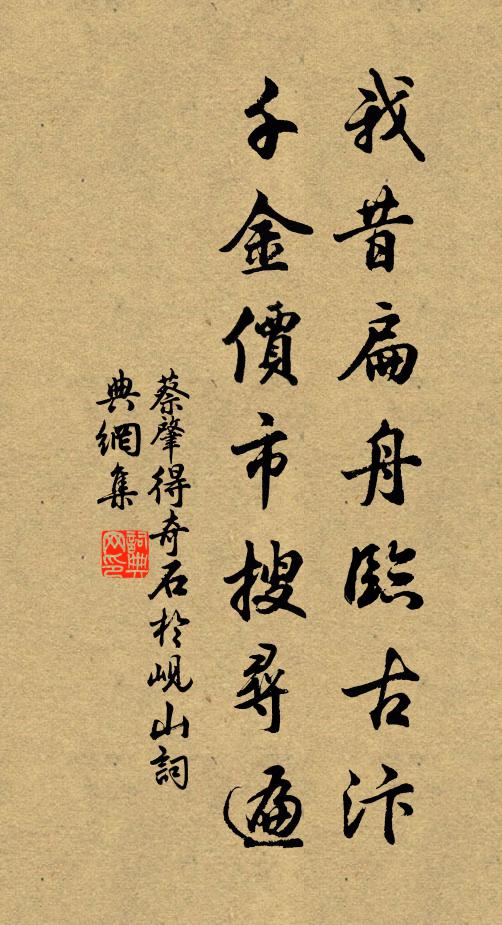 我昔扁舟臨古汴
千金價市搜尋遍
蔡肇得奇石於峴山詞
典網集
詞典
网印